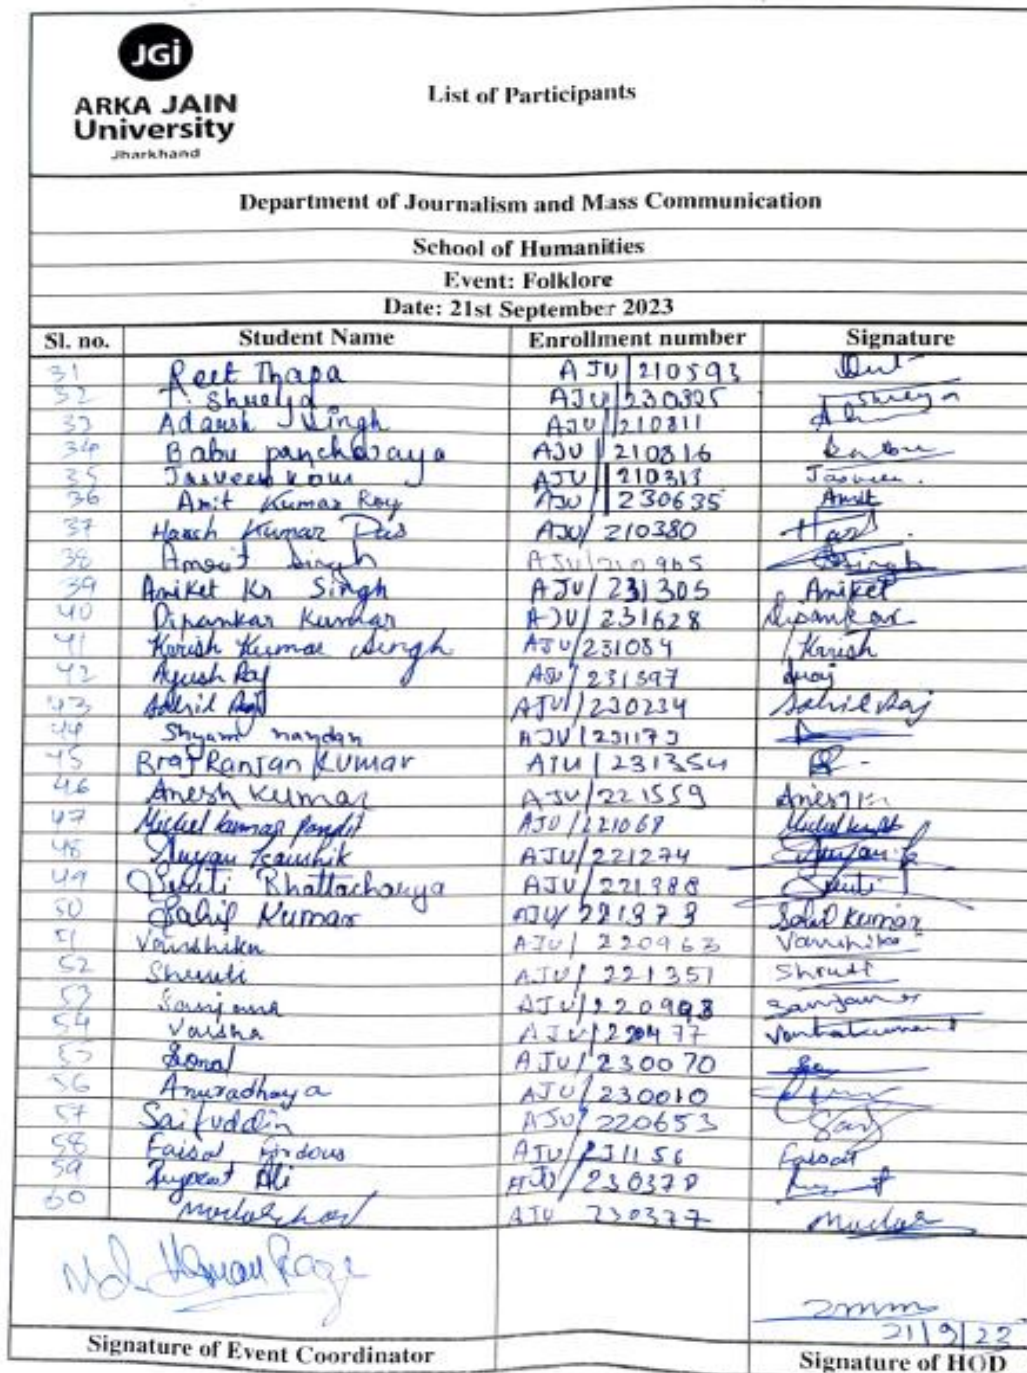 JGi
ARKA JAIN
University
Jharkhand
List of Participants
Department of Journalism and Mass Communication
School of Humanities
Event: Folklore
Date: 21st September 2023
Sl. no. Student Name Enrollment number Signature
31 Reet Thapa AJU/210593
32 T. Shreya AJU/230325 Shreya
33 Adarsh Singh AJU/210811
34 Babu pancharaya AJU/210816
35 Jasveer Kour AJU/210313 Jasveer.
36 Amit Kumar Roy AJU/230635 Amit
37 Harsh Kumar Das AJU/210380
38 Amrit Singh AJU/210965 Singh
39 Aniket Kr Singh AJU/231305 Aniket
40 Dipankar Kumar AJU/231628 Dipankar
41 Karish Kumar Singh AJU/231084 Karish
42 Ayush Raj AJU/231397
43 Sahil Raj AJU/230234 Sahil Raj
44 Shyam nandan AJU/231173
45 Braj Ranjan Kumar AJU/231354
46 Anesh Kumar AJU/221559
47 kumar Pandit AJU/221068
48 Kaushik AJU/221274
49 Sruti Bhattacharya AJU/221388 Sruti
50 Sahil Kumar AJU/221373 Sahil Kumar
51 Vanshika AJU/220963 Vanshika
52 Shruti AJU/221351 Shruti
53 Sanjana AJU/220998 Sanjana
54 Varsha AJU/220477
55 Sonal AJU/230070
56 Anuradhaya AJU/230010
57 Saifuddin AJU/220653
58 Faisal Firdous AJU/231156 Faisal
59 Ali AJU/230378
60 AJU 230377
Md.
21/9/23
Signature of Event Coordinator Signature of HOD